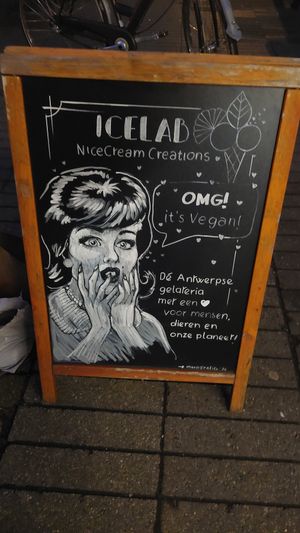 ICELAB
NiceCream Creations
OMG!
it's Vegan!
Dé Antwerpse
gelateria
met een
voor mensen,
dieren en
onze planeet!